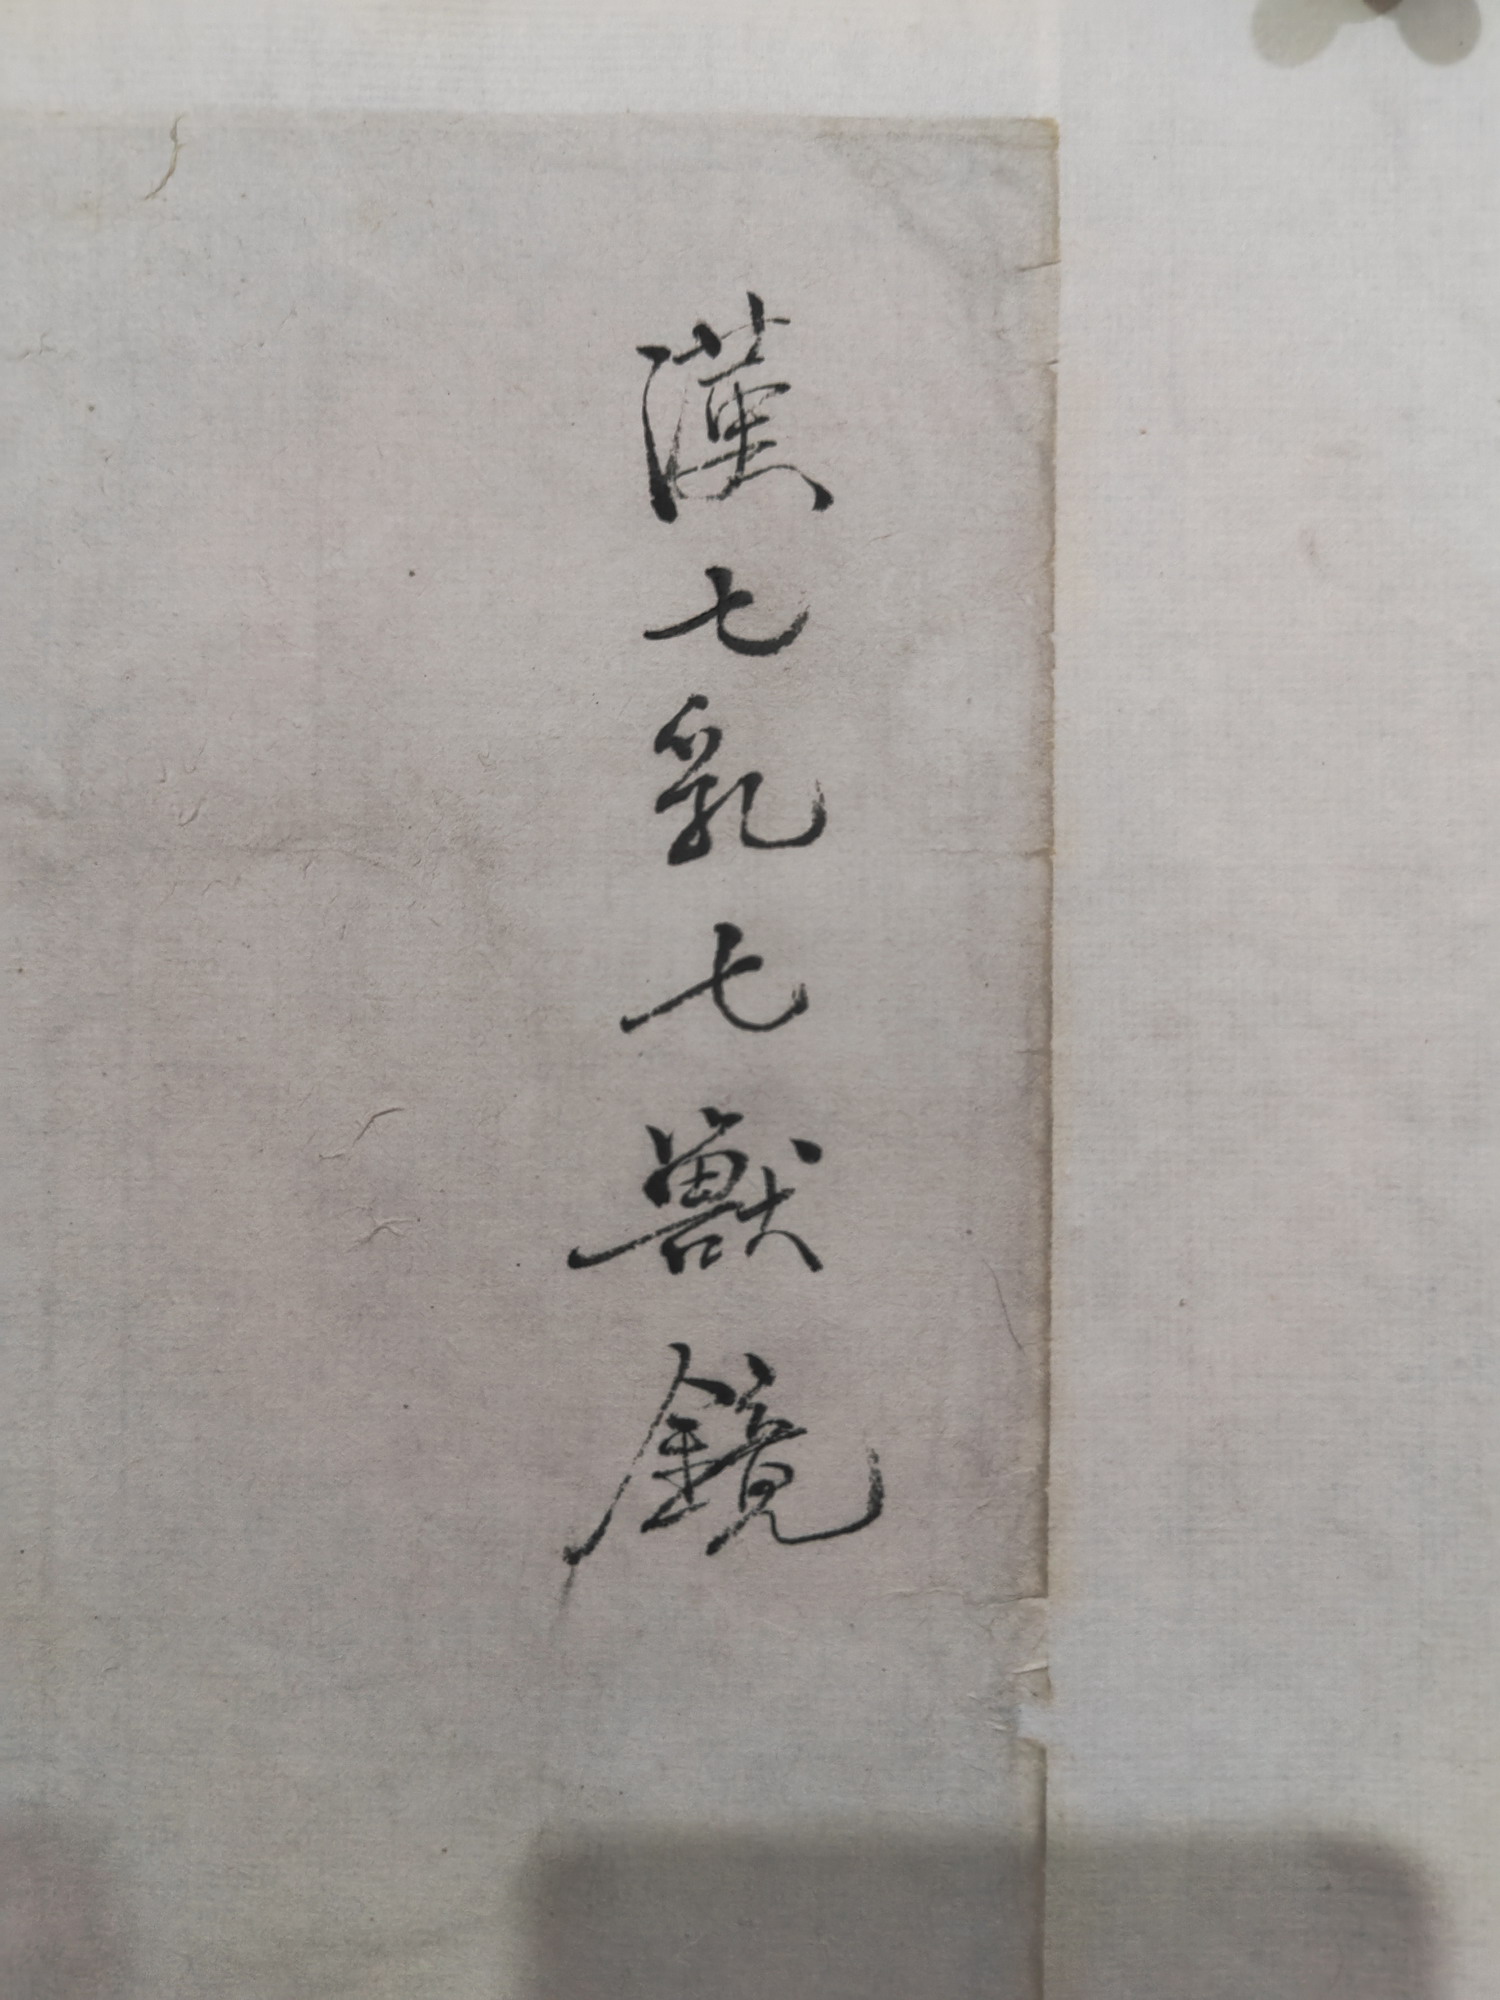 漢七乳七獸鏡